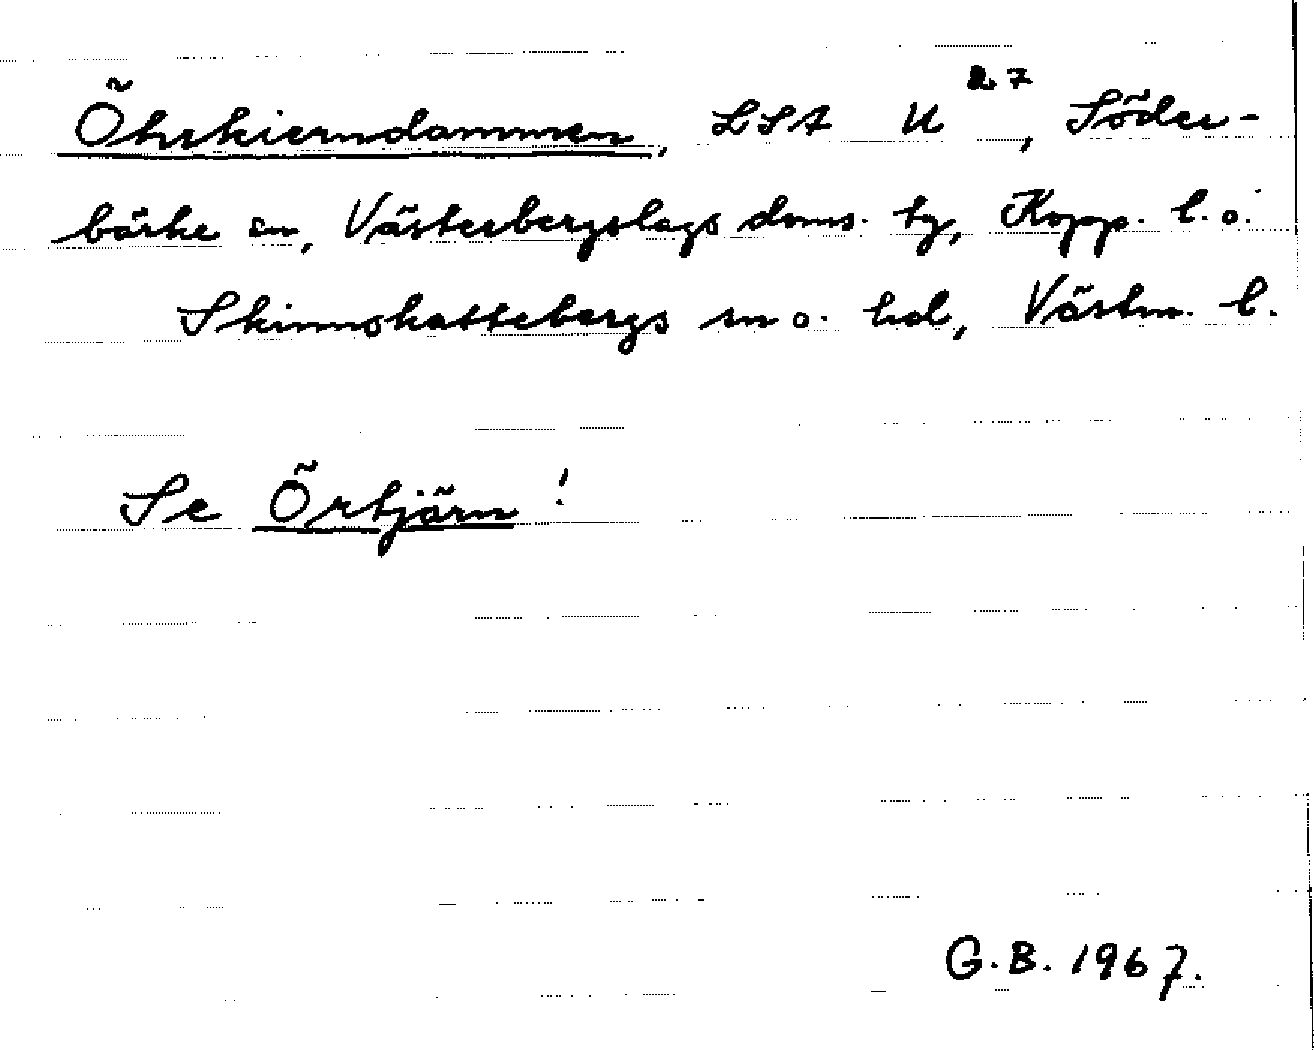 Öhrkierndammen, LSA U 27, Söder-
bärke sn, Västerbergslags doms. tg, Kopp. l. o.
Skinnskattebergs sn o. hd, Västm. l.
Se Örtjärn!
G.B. 1967.